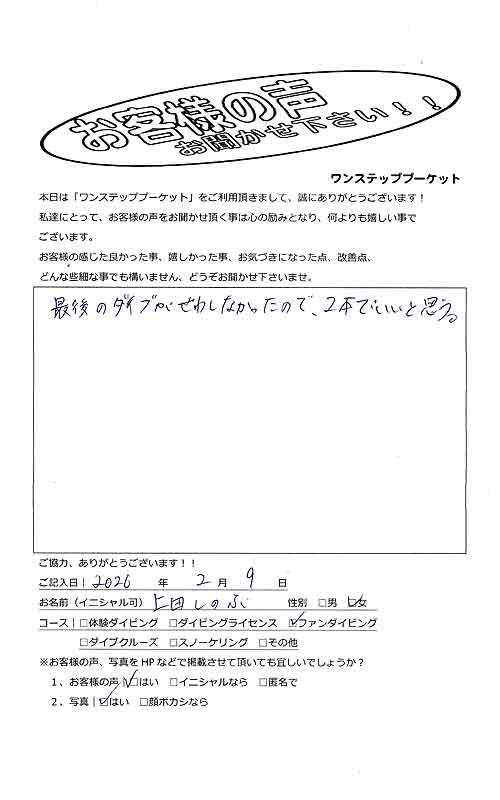 お客様の声
お聞かせ下さい！！
ワンステッププーケット
本日は「ワンステッププーケット」をご利用頂きまして、誠にありがとうございます！
私達にとって、お客様の声をお聞かせ頂く事は心の励みとなり、何よりも嬉しい事で
ございます。
お客様の感じた良かった事、嬉しかった事、お気づきになった点、改善点、
どんな些細な事でも構いません、どうぞお聞かせ下さいませ。
最後のダイブがせわしなかったので、2本でいいと思う。
ご協力、ありがとうございます！！
ご記入日｜2020 年 2月 9 日
お名前（イニシャル可）上田しのぶ 性別 □男 ☑女
コース｜□体験ダイビング □ダイビングライセンス ☑ファンダイビング
□ダイブクルーズ □スノーケリング □その他
※お客様の声、写真を HP などで掲載させて頂いても宜しいでしょうか？
1、お客様の声｜☑はい □イニシャルなら □匿名で
2、写真｜☑はい □顔ボカシなら